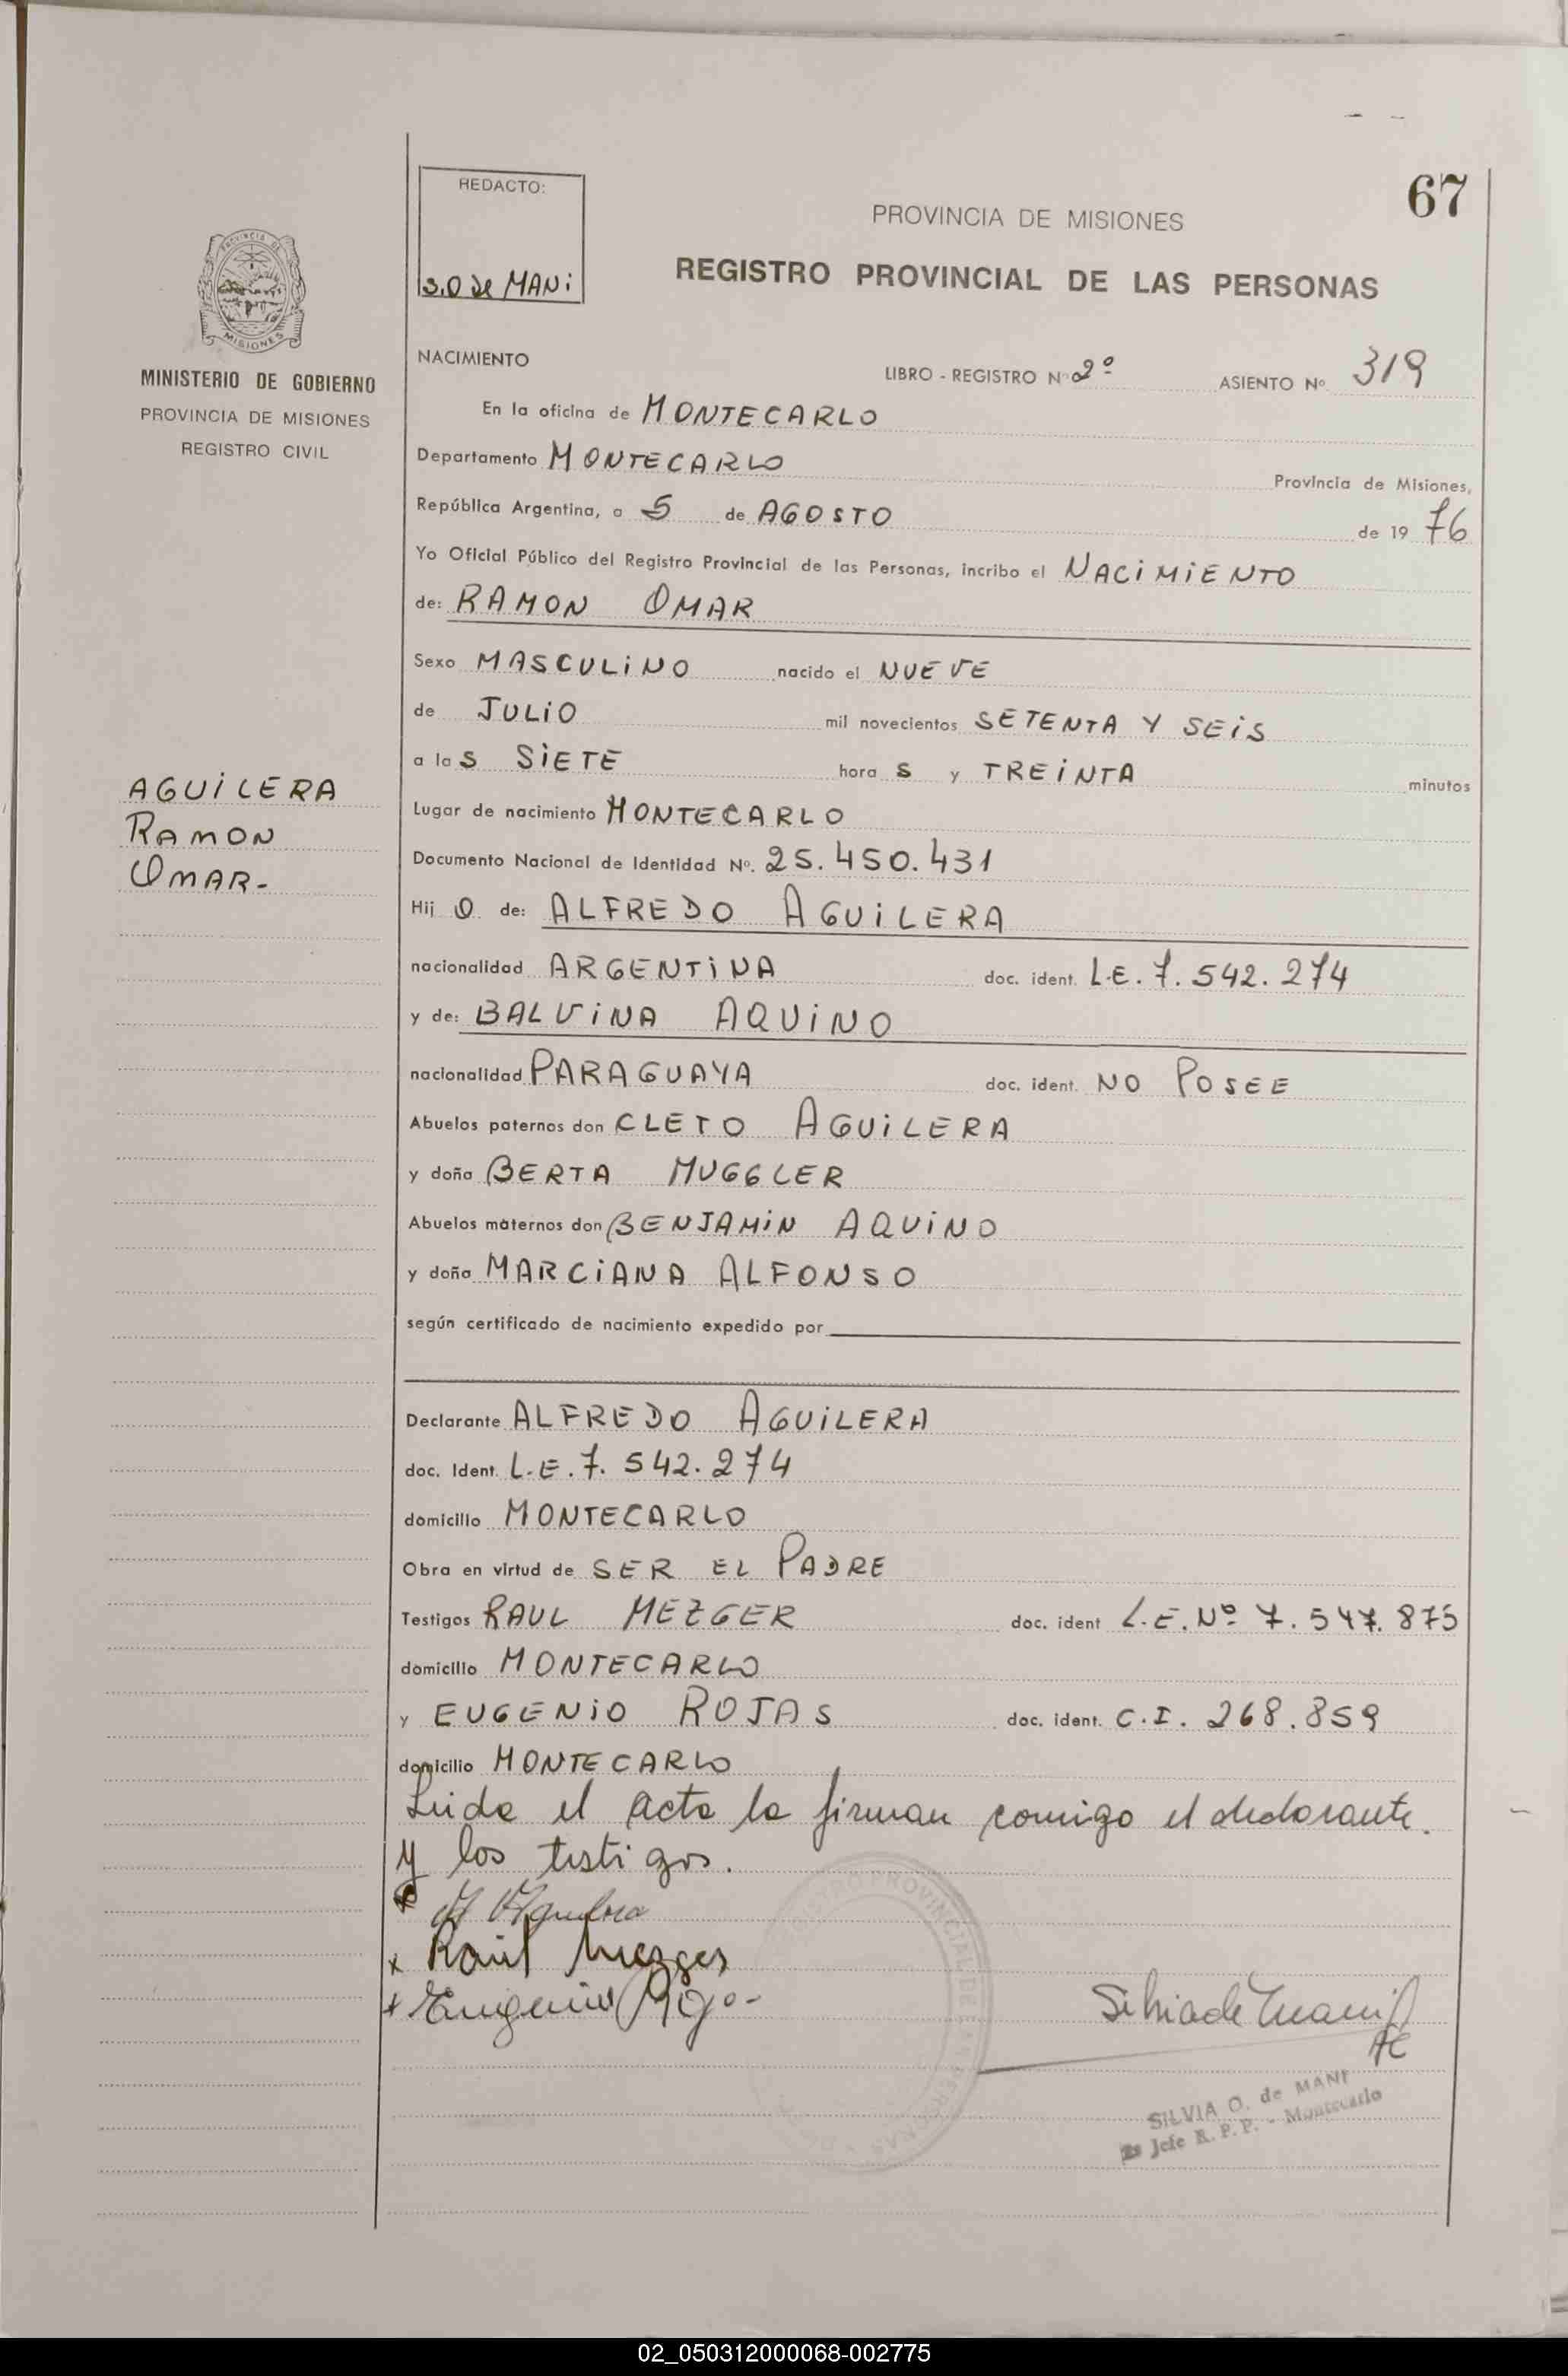 67
REDACTO:
S.O de MANI
PROVINCIA DE MISIONES
REGISTRO PROVINCIAL DE LAS PERSONAS
PROVINCIA DE
MISIONES
MINISTERIO DE GOBIERNO
PROVINCIA DE MISIONES
REGISTRO CIVIL
NACIMIENTO
LIBRO - REGISTRO Nº 2º ASIENTO Nº 319
En la oficina de MONTECARLO
Departamento MONTECARLO Provincia de Misiones,
República Argentina, a 5 de AGOSTO de 19 76
Yo Oficial Público del Registro Provincial de las Personas, incribo el NACIMIENTO
de: RAMON OMAR
Sexo MASCULINO nacido el NUEVE
de JULIO mil novecientos SETENTA Y SEIS
a las SIETE horas y TREINTA minutos
AGUILERA
RAMON
OMAR-
Lugar de nacimiento MONTECARLO
Documento Nacional de Identidad Nº. 25.450.431
Hijo de: ALFREDO AGUILERA
nacionalidad ARGENTINA doc. ident. L.E. 7.542.274
y de: BALVINA AQUINO
nacionalidad PARAGUAYA doc. ident. NO POSEE
Abuelos paternos don CLETO AGUILERA
y doña BERTA MUGGLER
Abuelos maternos don BENJAMIN AQUINO
y doña MARCIANA ALFONSO
según certificado de nacimiento expedido por
Declarante ALFREDO AGUILERA
doc. Ident. L.E. 7.542.274
domicilio MONTECARLO
Obra en virtud de SER EL PADRE
Testigos RAUL MEZGER doc. ident L.E. Nº 7.547.875
domicilio MONTECARLO
y EUGENIO ROJAS doc. ident. C.I. 268.859
domicilio MONTECARLO
Leida el acta la firman comigo el declarante.
y los testigos.
A Aguilera
x Raul Mezger
x Eugenio Rojas
Silvia de Mani
REGISTRO PROVINCIAL DE LAS PERSONAS
SILVIA O. de MANI
Jefe R. P. P. - Montecarlo
02_050312000068-002775